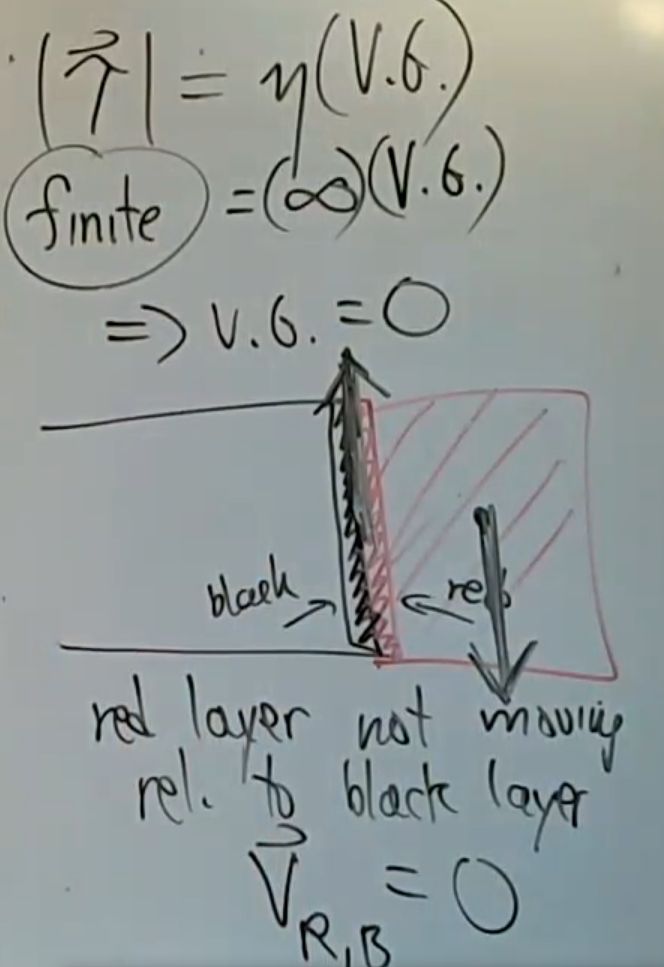 |τ⃗| = η(V.G.)
finite = (∞)(V.G.)
=> V.G. = 0
black
red
red layer not moving
rel. to black layer
V⃗_{R,B} = 0